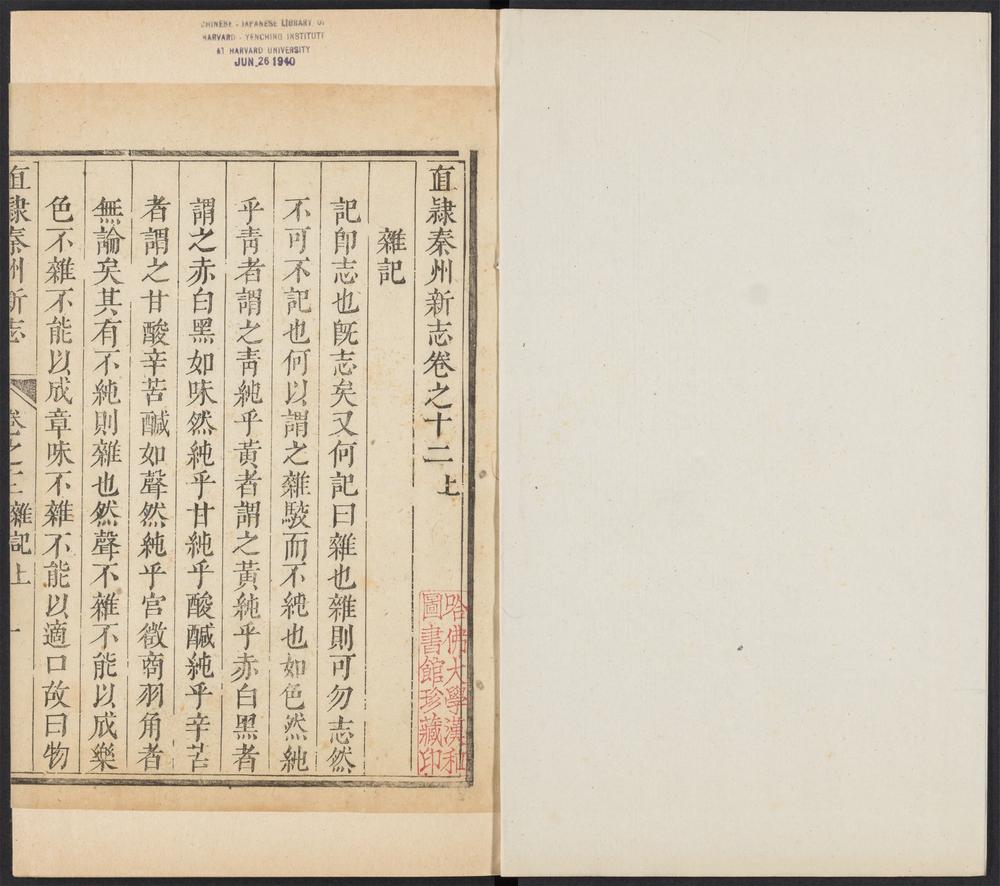 CHINESE - JAPANESE LIBRARY OF
HARVARD - YENCHING INSTITUTE
AT HARVARD UNIVERSITY
JUN 26 1940
直隸秦州新志卷之十二上
哈佛大學漢和
圖書館珍藏印
雜記
記卽志也旣志矣又何記曰雜也雜則可勿志然
不可不記也何以謂之雜駁而不純也如色然純
乎靑者謂之靑純乎黃者謂之黃純乎赤白黑者
謂之赤白黑如味然純乎甘純乎酸醎純乎辛苦
者謂之甘酸辛苦醎如聲然純乎宮徵商羽角者
無論矣其有不純則雜也然聲不雜不能以成樂
色不雜不能以成章味不雜不能以適口故曰物
直隸秦州新志 卷之 雜記上 一